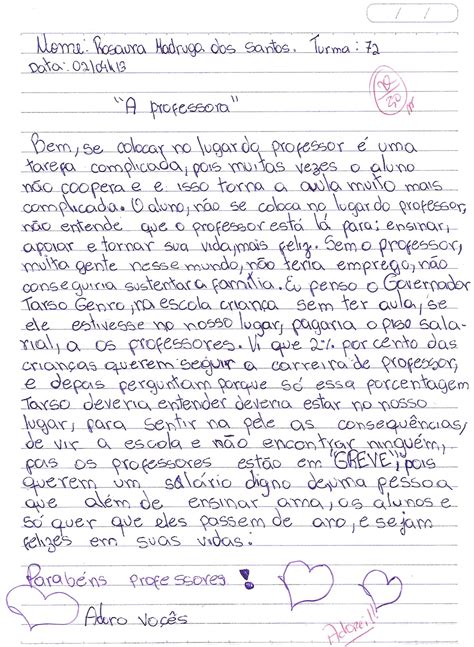 / /
Nome: Rosaura Madruga dos Santos. Turma: 72
Data: 02/04/13
20
"A professora"
Bem, se colocar no lugar do professor é uma
tarefa complicada, pois muitas vezes o aluno
não coopera e e isso torna a aula muito mais
complicada. O aluno, não se coloca no lugar do professor,
não entende que o professor está lá para: ensinar,
apoiar e tornar sua vida, mais feliz. Sem o professor,
muita gente nesse mundo, não teria emprego, não
conseguiria sustentar a família. Eu penso o Governador
Tarso Genro, na escola criança sem ter aula, se
ele estivesse no nosso lugar, pagaria o piso sala-
rial, a os professores. Vi que 2% por cento das
crianças querem seguir a carreira de professor,
e depois perguntam porque só essa porcentagem
Tarso deveria entender deveria estar no nosso
lugar, para sentir na pele as consequências,
de vir a escola e não encontrar ninguém,
pois os professores estão em "GREVE", pois
querem um salário digno de uma pessoa
que além de ensinar ama, os alunos e
só quer que eles passem de ano, e sejam
felizes em suas vidas.
Parabéns professores!
Adoro voçês
Adorei!!